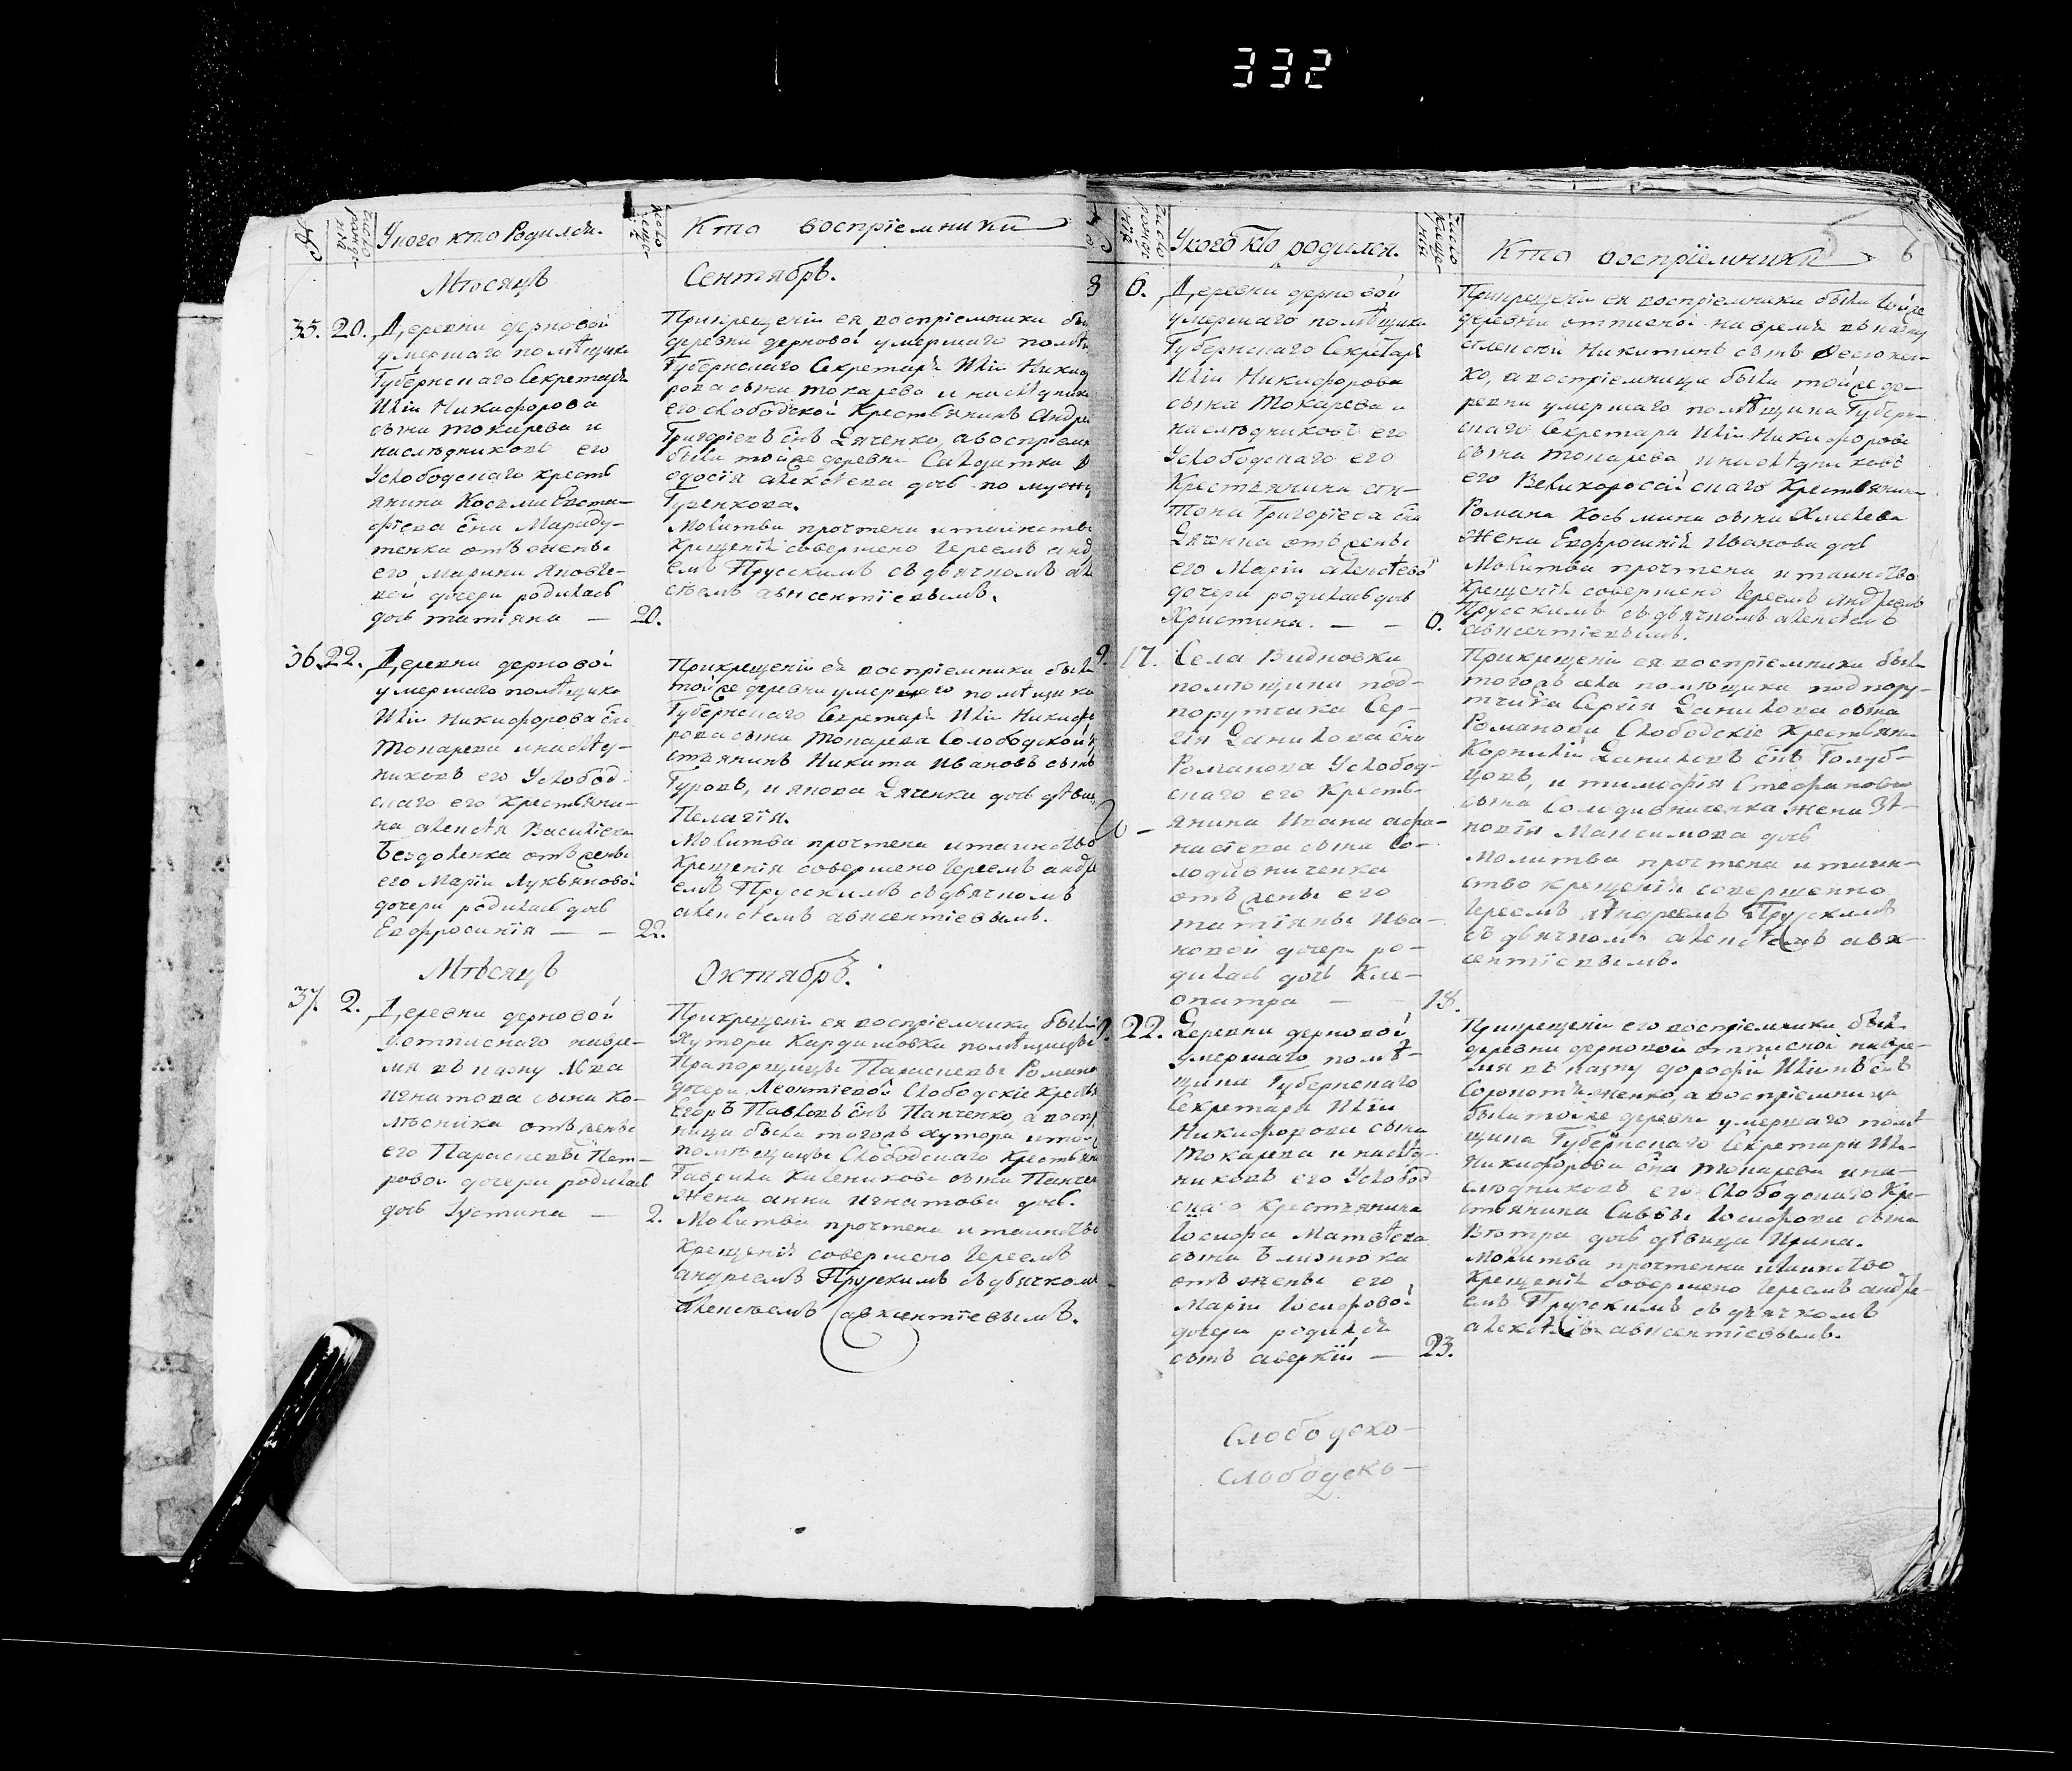 332
У кого кто Родился.
Кто воспрiемники
Мѣсяцъ
Сентябрь.
35. 20. Деревни дерновой
умершаго помѣщика
Губернскаго Секретаря
Илiи Никифорова
сына токарева и
наслѣдниковъ его
Услободскаго крестъ
янина Косьми Евста-
фiева сна
тенка отъ жены
его Марины Яковле-
вой дочери родилась
дочь татiяна — 20.
Прикрещенiи ея воспрiемники бы
деревни дерновой умершаго помѣ
Губернскаго Секретаря Илiи Никиф
рова сына токарева и наслѣдник
его слободской Крестьянинъ Андре
Григорiевъ снъ Дяченко, а воспрiем
была тойже деревни Салдатка Ѳ
едосiя алексѣева дочь по мужу
Гуренкова.
Молитва прочтена и таинство
Крещенiя совершено Iереемъ анд
емъ Прусскимъ съ дьячкомъ ал
сѣемъ авксентiевымъ.
36. 22. Деревни дерновой
умершаго помѣщика
Илiи Никифорова сна
токарева и наслѣд-
никовъ его Услобод-
скаго его крестьяни-
на алексѣя Васильева
Бездоленка отъ жены
его Марiи Лукьяновой
дочери родилась дочь
Евфросинiя — — 22.
Прикрещенiи ея воспрiемники были
тойже деревни умершаго помѣщика
Губернскаго Секретаря Илiи Никифо
рова сына токарева Солободской к
стьянинъ Никита Ивановъ сынъ
Гуровъ, и якова Дяченка дочь дѣвица
Пелагiя.
Молитва прочтена и таинство
Крещенiя совершено Iереемъ андре
емъ Прусскимъ съ дьячкомъ
алексѣемъ авксентiевымъ.
Мѣсяцъ
Октябрь.
37. 2. Деревни дерновой
отписнаго навре-
мя въ казну Льва
игнатова сына Ко-
лѣсника отъ жены
его Параскевы Пет-
ровой дочери родилась
дочь Iустина — 2.
Прикрещенiи ея воспрiемники были
Хутора Кардашовка помѣщицы
Прапорщицы Параскевы Романо
дочери Леонтiевой Слободскiе Кресть
Егоръ Павловъ снъ Панченко, а воспр
ница была тогожъ хутора и той
помѣщицы Слободскаго Крестьян
Гаврила сына Панчен
жена анна игнатова дочь.
Молитва прочтена и таинство
Крещенiя совершено Iереемъ
андреемъ Прусскимъ съ дьячкомъ
алексѣемъ авксентiевымъ.
У кого кто родился.
Кто воспрiемники
6
8 6. Деревни дерновой
умершаго помѣщика
Губернскаго Секретаря
Илiи Никифорова
сына Токарева и
наслѣдниковъ его
Услободскаго его
Крестьянина ан-
тона Григорiева сна
Дяченка отъ жены
его Марiи алексѣевой
дочери родилась дочь
Христина. — —
Прикрещенiи ея воспрiемники были тойже
деревни отписной навремя въ казну
Никитинъ сынъ
ко, а воспрiемница была тойже де-
ревни умершаго помѣщика Губерн-
скаго Секретаря Илiи Никифорова
сына токарева и наслѣдниковъ
его Великоросiйскаго Крестьянин
Романа Косьмина сына Хмелева
Жена Евфросинiя Иванова дочь
Молитва прочтена и таинство
Крещенiя совершено Iереемъ Андреемъ
Прусскимъ съ дьячкомъ алексѣемъ
авксентiевымъ.
9. 17. Села Видновки
помѣщика под-
порутчика Сер-
гiя Данилова сна
Романова Услобод-
скаго его Кресть-
янина Ивана афа-
насiева сына Со-
лодивниченка
отъ жены его
татiяны Ива-
новой дочери ро-
дилась дочь Кле-
опатра — 18.
Прикрещенiи ея воспрiемники были
тогожъ села помѣщика подпору-
тчика Сергiя Данилова сына
Романова Слободскiе Крестьян
Корнилiй Даниловъ снъ Голуб-
цовъ, и тимофiя Стефанова
сына Солодивниченка жена Зѣ-
новiя Максимова дочь
Молитва прочтена и таин-
ство крещенiя совершенно
Iереемъ Андреемъ Прускимъ
съ дьячкомъ алексѣемъ авк-
сентiевымъ.
22. Деревни дерновой
умершаго помѣ-
щика Губернскаго
Секретаря Илiи
Никифорова сына
Токарева и наслѣд-
никовъ его Услобод
скаго Крестьянина
Iосифа Матвѣева
сына Близнюка
отъ жены его
Марiи Iосифовой
дочери родился
сынъ аверкiй — 23.
Прикрещенiи его воспрiемники были
деревни дерновой отписной навре-
мя въ казну дорофiй Илiинъ снъ
а воспрiемница
была тойже деревни умершаго помѣ
щика Губернскаго Секретаря Или
Никифорова сна токарева и на-
слѣдниковъ его Слободскаго Кре-
стьянина Саввы Iосифова сына
дочь дѣвица Ирина.
Молитва прочтенна и таинство
Крещенiя совершено Iереемъ андре-
емъ Прускимъ съ дьячкомъ
алексѣемъ авксентiевымъ.
Слободско-
Слободско-